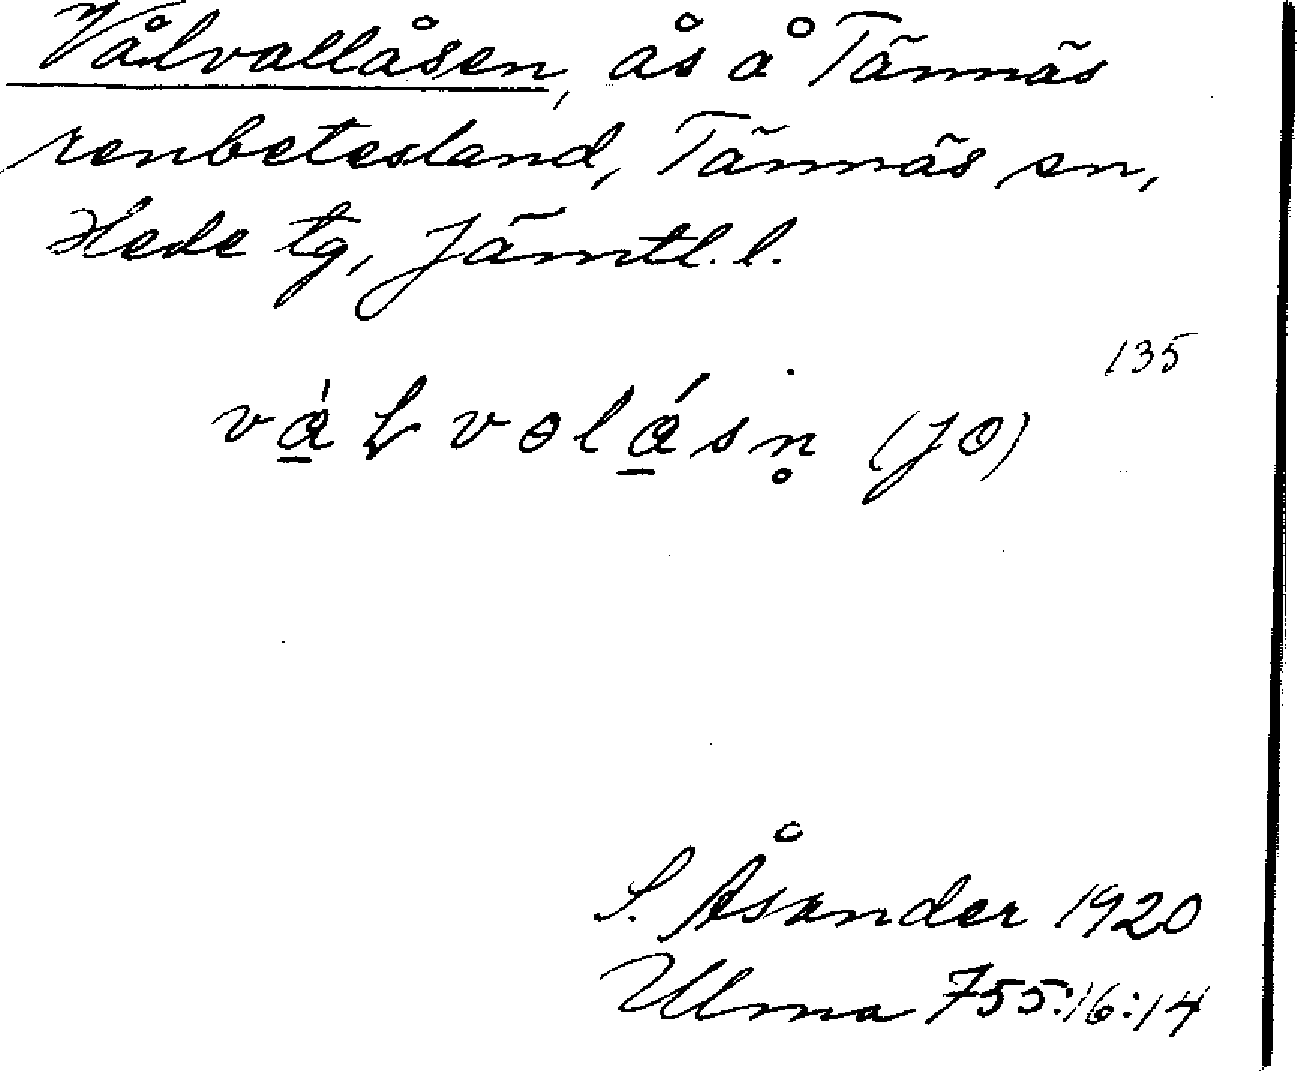 Vålvallåsen, ås å Tännäs
renbetesland, Tännäs sn,
Hede tg, Jämtl. l.
135
(JO)
S. Åsander 1920
Ulma 755:16:14